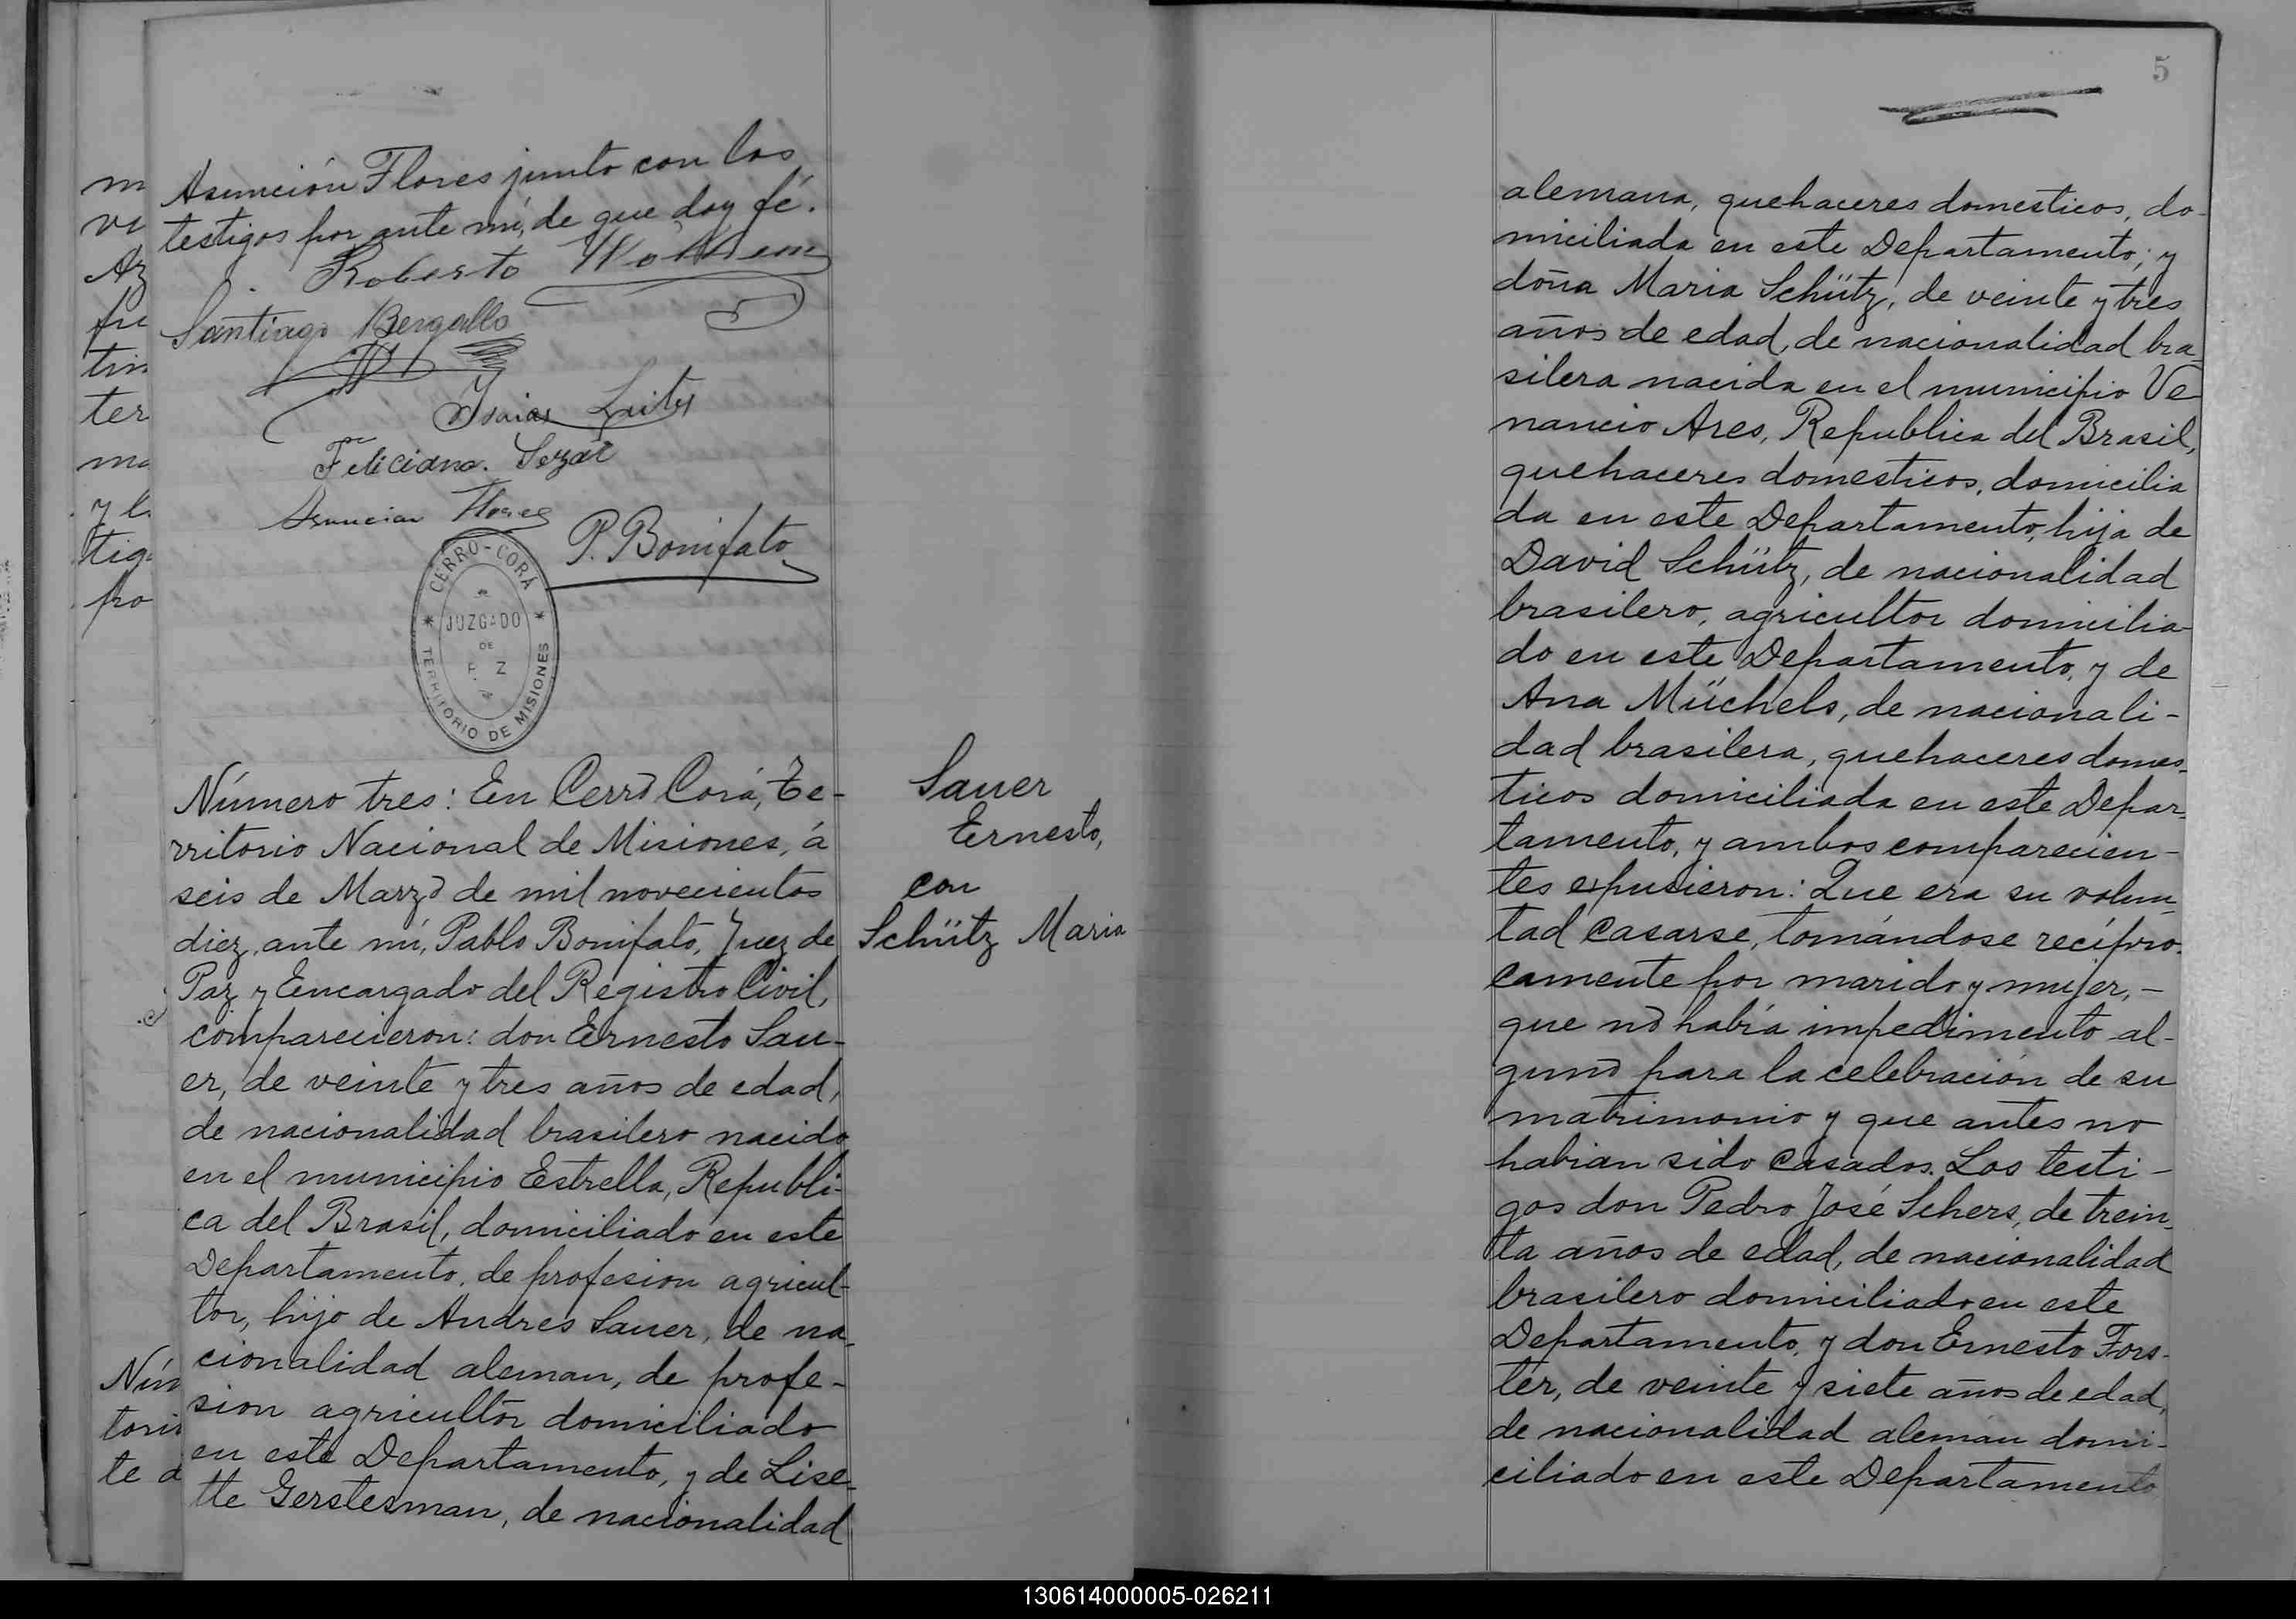 Asunción Flores junto con los
testigos por ante mí, de que doy fé.
Roberto
Santiago Bergallo
Isaias Leites
Feliciano
Asuncion Flores
P. Bonifato
CERRO-CORÁ
JUZGADO
DE
P Z
TERRITORIO DE MISIONES
Número tres: En Cerro Corá, Te-
rritorio Nacional de Misiones, á
seis de Marzo de mil novecientos
diez, ante mí, Pablo Bonifato, Juez de
Paz y Encargado del Registro Civil,
comparecieron: don Ernesto Sau-
er, de veinte y tres años de edad,
de nacionalidad brasilero nacido
en el municipio Estrella, Republi-
ca del Brasil, domiciliado en este
Departamento, de profesion agricul-
tor, hijo de Andres Sauer, de na-
cionalidad aleman, de profe-
sion agricultor domiciliado
en este Departamento, y de Lise-
tte Gerstesman, de nacionalidad
Sauer
Ernesto,
con
Schütz Maria
m
vi
Az
fu
tin
ter
ma
y l
tig
pro
Núm
tori
te d
5
alemana, quehaceres domesticos, do-
miciliada en este Departamento; y
doña Maria Schütz, de veinte y tres
años de edad, de nacionalidad bra-
silera nacida en el municipio Ve
nancio Ares, Republica del Brasil,
quehaceres domesticos, domicilia
da en este Departamento, hija de
David Schütz, de nacionalidad
brasilero, agricultor domicilia-
do en este Departamento, y de
Ana Müchels, de nacionali-
dad brasilera, quehaceres domes-
ticos domiciliada en este Depar-
tamento, y ambos comparecien-
tes expusieron: Que era su volun-
tad casarse, tomándose recípro-
camente por marido y mujer, -
que no había impedimento al-
guno para la celebración de su
matrimonio y que antes no
habian sido casados. Los testi-
gos don Pedro José Schers, de trein-
ta años de edad, de nacionalidad
brasilero domiciliado en este
Departamento, y don Ernesto Fors-
ter, de veinte y siete años de edad,
de nacionalidad alemán domi-
ciliado en este Departamento
130614000005-026211